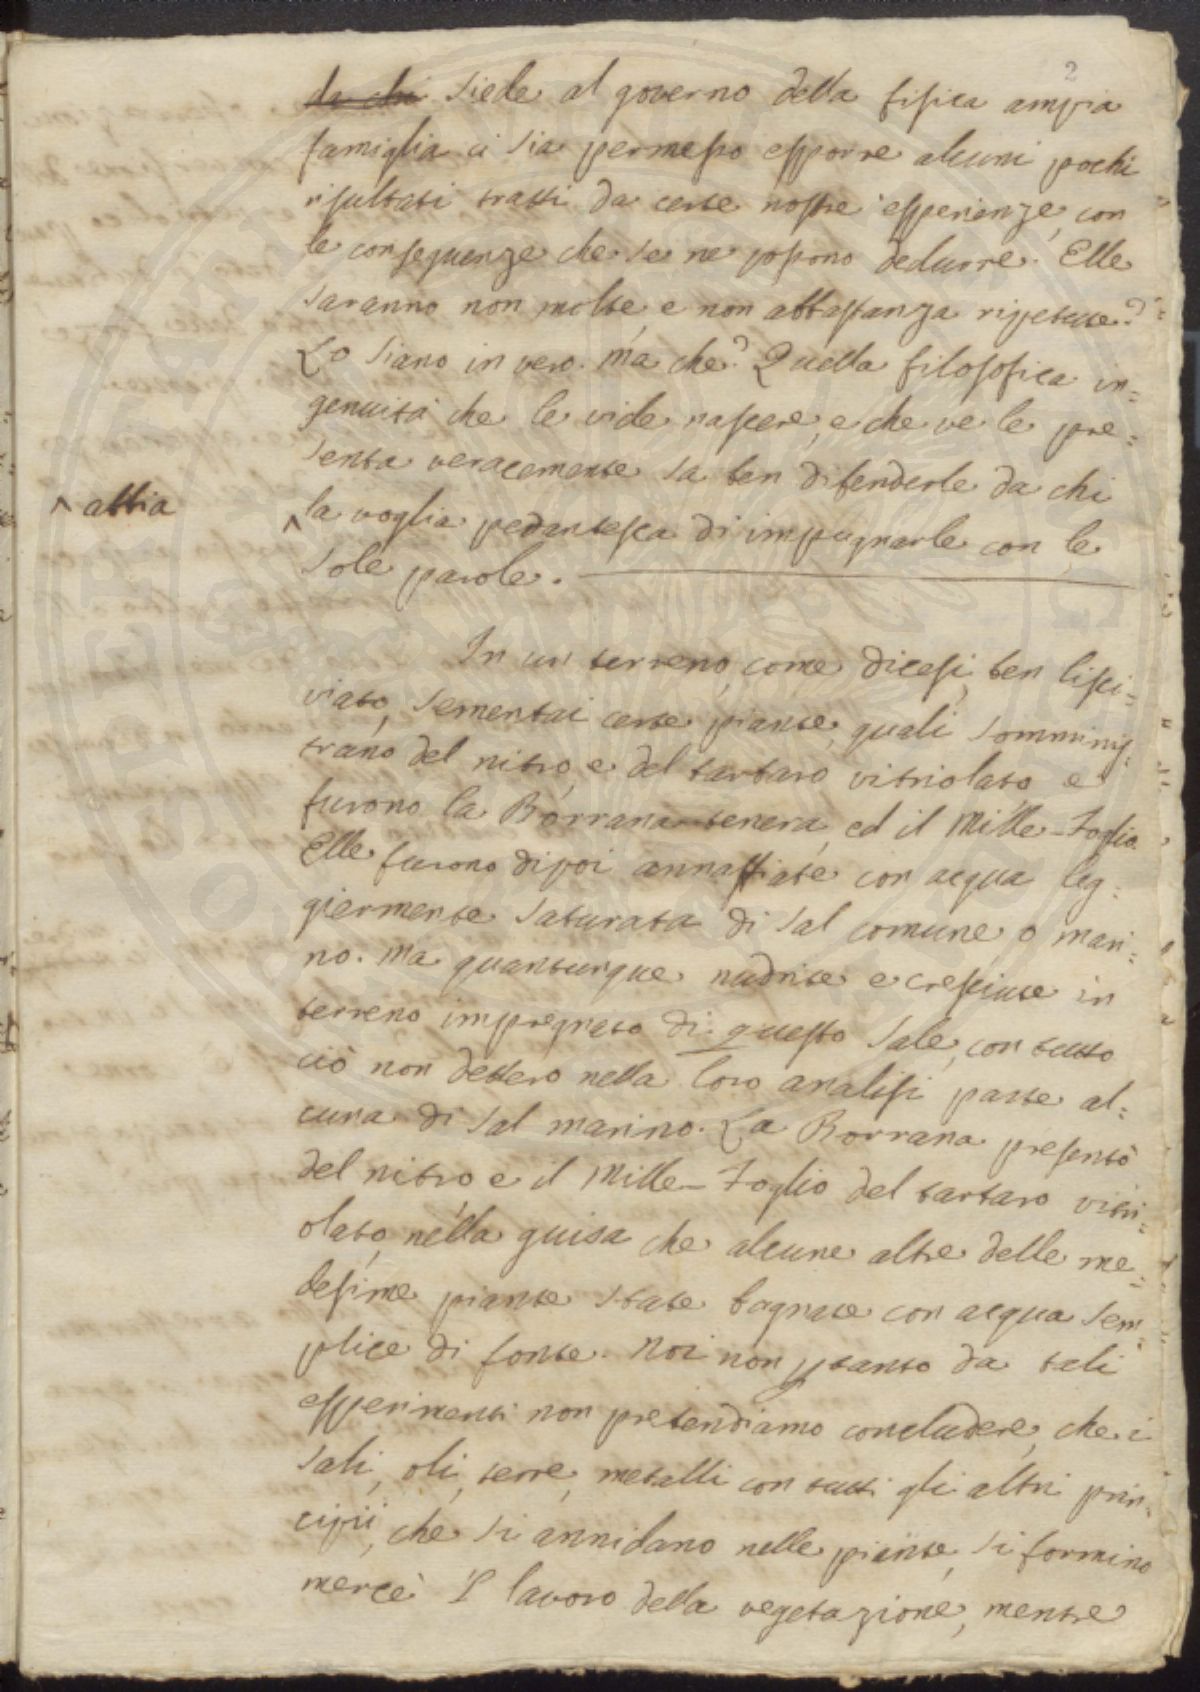 2
da chi siede al governo della fisica ampia
famiglia ci sia permesso esporre alcuni pochi
risultati tratti da certe nostre esperienze, con
le conseguenze che se ne possono dedurre. Elle
saranno non molte, e non abbastanza ripetute?
Lo siano in vero. ma che? Quella filosofica in=
genuità che le vide nascere, e che ve le pre=
senta veracemente sa ben difenderle da chi
^ abbia
^ la voglia pedantesca di impugnarle con le
sole parole.
In un terreno, come dicesi, ben lisci=
viato, sementai certe piante, quali somminis=
trano del nitro, e del tartaro vitriolato e
furono la Borrana tenera, ed il Mille-Foglio.
Elle furono dipoi annaffiate con acqua leg=
giermente saturata di sal comune, o mari=
no. Ma quantunque nudrite e cresciute in
terreno impregnato di questo sale, con tutto
ciò non dettero nella loro analisi parte al=
cuna di sal marino. La Borrana presentò
del nitro e il Mille-Foglio del tartaro vitri=
olato, nella guisa che alcune altre delle me=
desime piante state bagnate con acqua sem=
plice di fonte. Noi non ptanto da tali
esperimenti non pretendiamo concludere, che i
sali, oli, terre, metalli con tutti gli altri prin=
cipii, che si annidano nelle piante, si formino
mercè l' lavoro della vegetazione, mentre